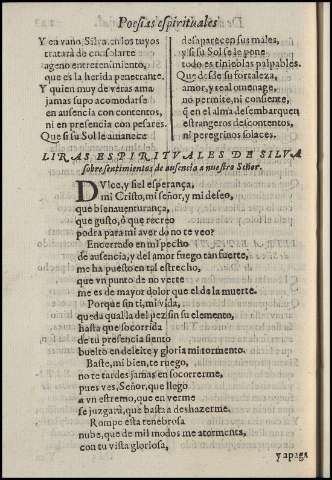 Poesias espirituales
Y en vano, Silva, en los tuyos
tratará de consolarte
ageno entretenimiento,
que es la herida penetrante.
Y quien muy de veras ama
jamas supo acomodarse
en ausencia con contentos,
ni en presencia con pesares.
Que si su Sol le amanece
desaparecen sus males,
y si su Sol se le pone
todo es tinieblas palpables.
Que desde su fortaleza,
amor, y real omenage,
no permite, ni consiente,
q̃ en el alma desembarquen
estrangeros del contentos,
ni peregrinos solaces.
LIRAS ESPIRITVALES DE SILVA
sobre sentimientos de ausencia a nuestro Señor.
DVlce, y fiel esperança,
mi Cristo, mi señor, y mi deseo,
que bienauenturança,
que gusto, ò que recreo
podra para mi auer do no te veo?
Encerrado en mi pecho
de ausencia, y del amor fuego tan fuerte,
me ha puesto en tal estrecho,
que vn punto de no verte
me es de mayor dolor que el de la muerte.
Porque sin ti, mi vida,
queda qual la del pez sin su elemento,
hasta que socorrida
de tu presencia siento
buelto en deleite y gloria mi tormento.
Baste, mi bien, te ruego,
no te tardes jamas en socorrerme,
pues ves, Señor, que llego
a vn estremo, que en verme
se juzgará, que basta a deshazerme.
Rompe esta tenebrosa
nube, que de mil modos me atormenta,
con tu vista gloriosa,
y apaga